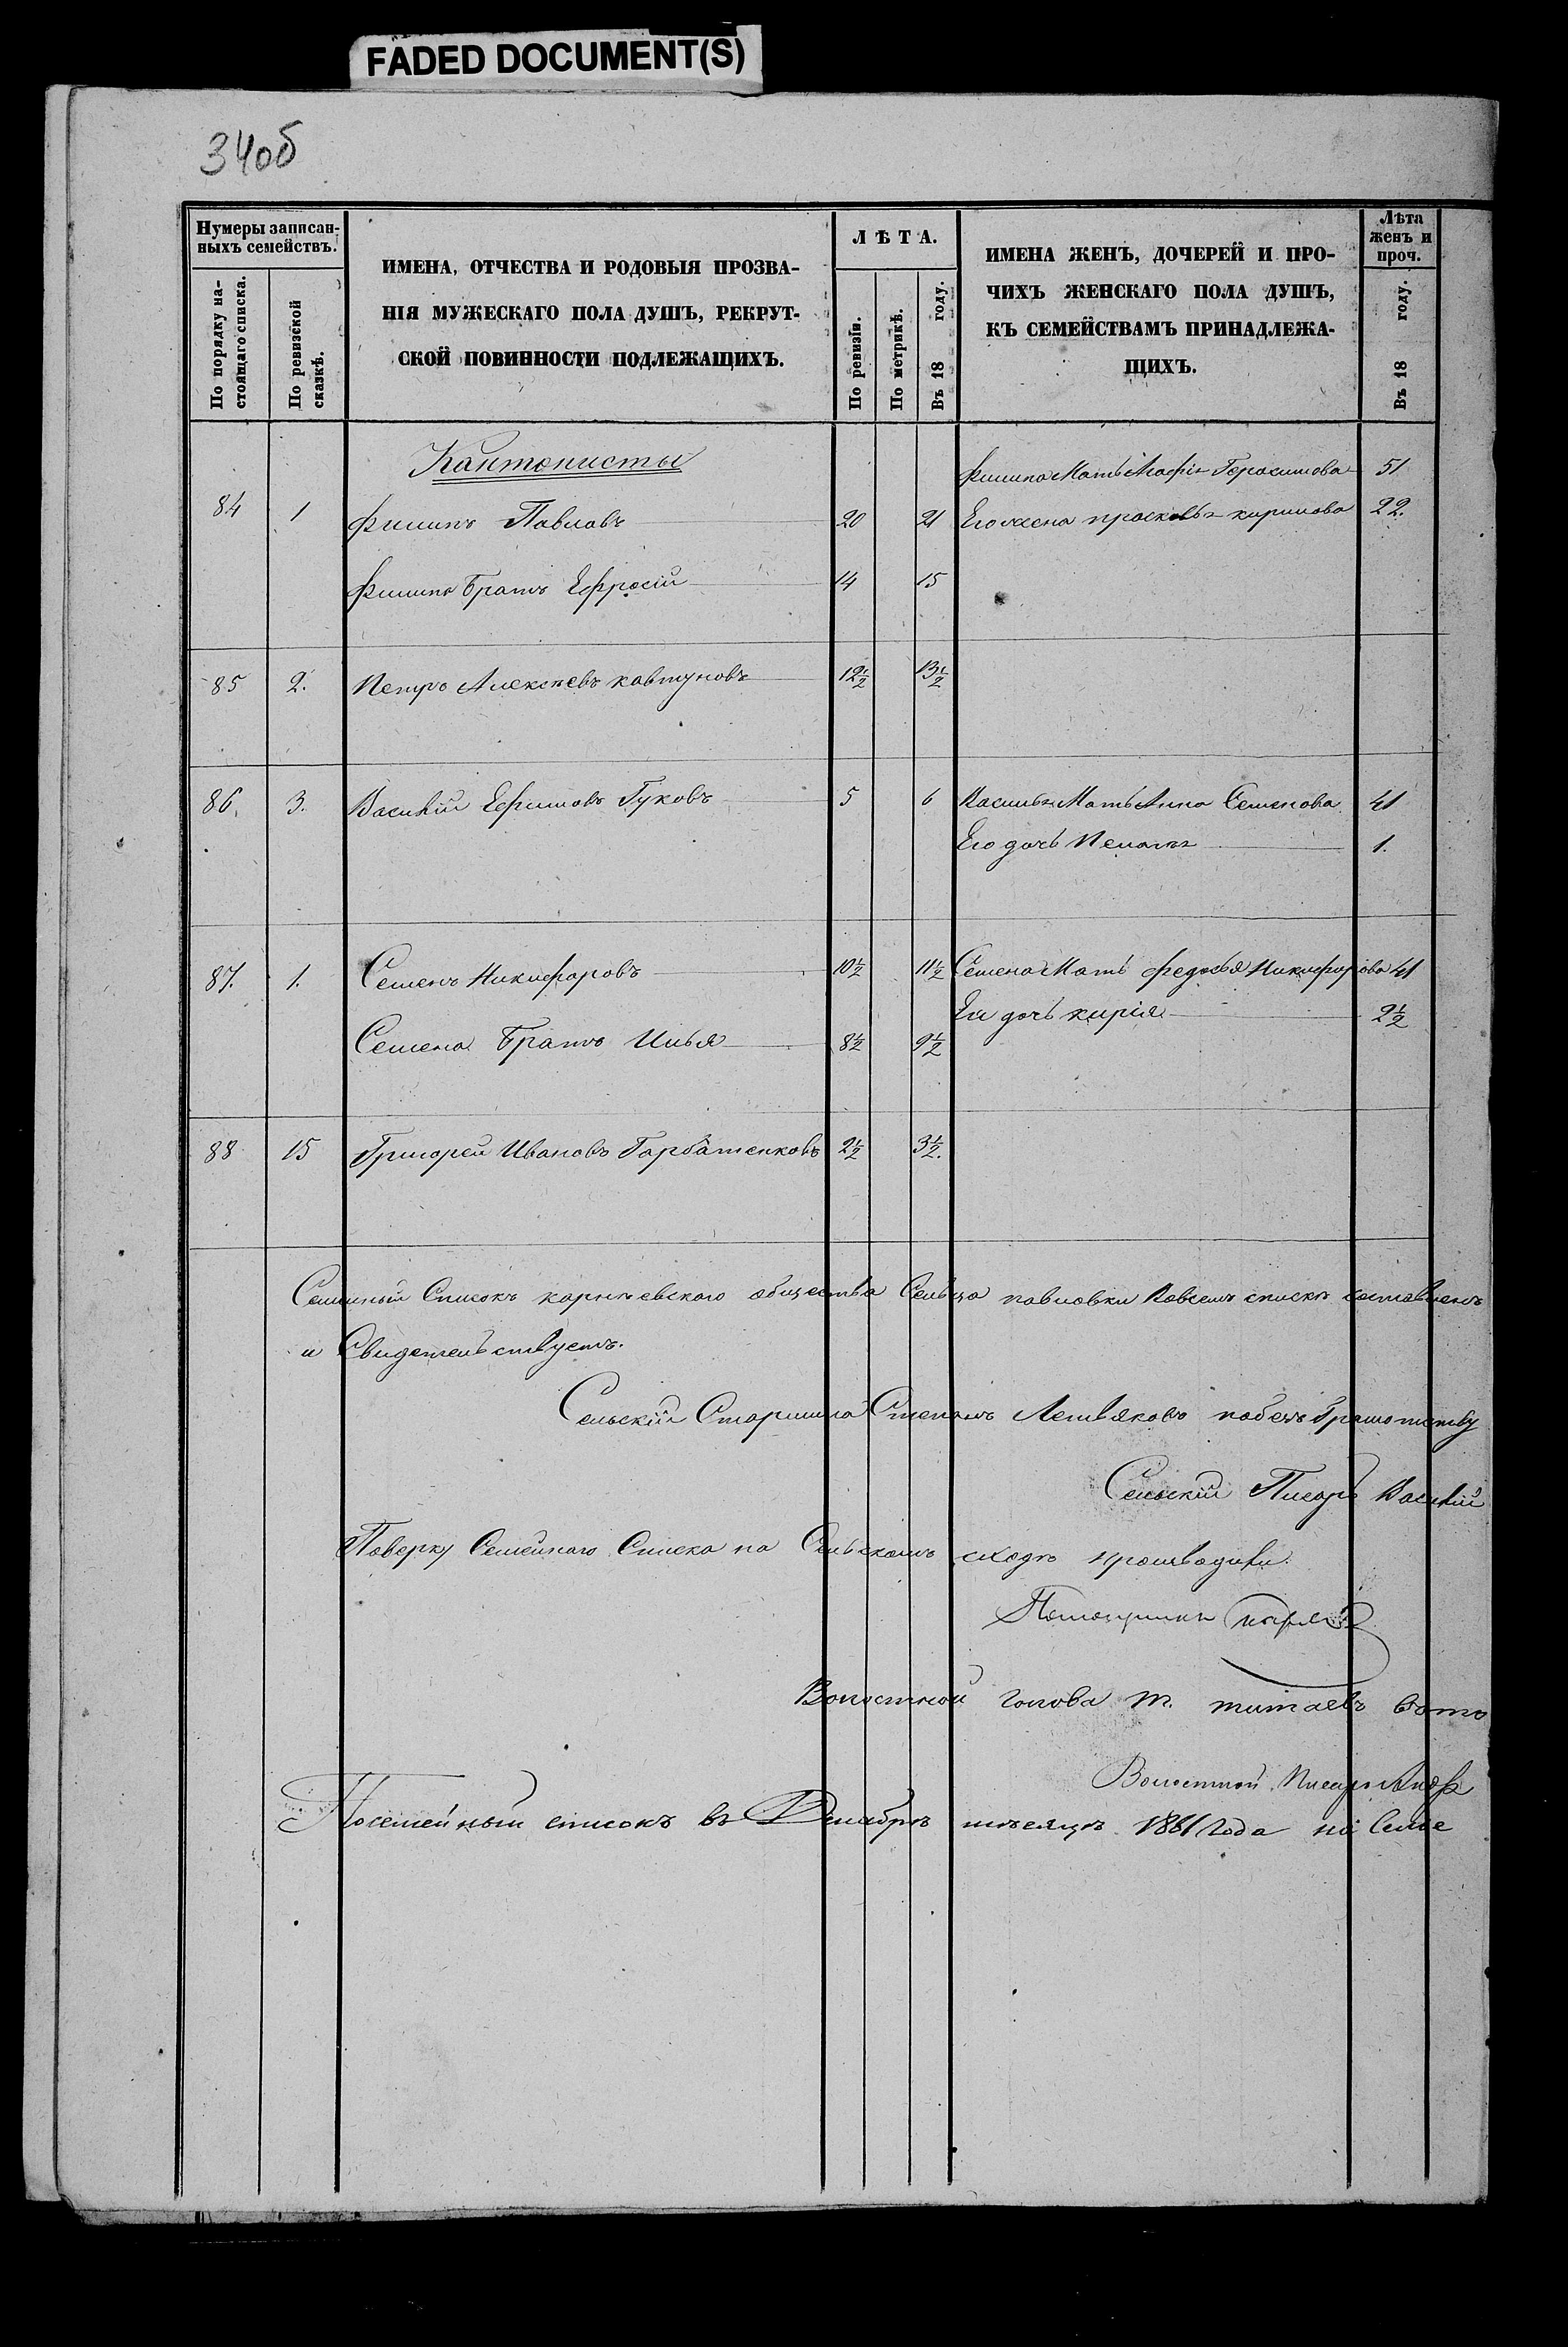 FADED DOCUMENT(S)
34об
Нумеры записан-
ныхъ семействъ.
По порядку на-
стоящаго списка.
По ревизской
сказкѣ.
ИМЕНА, ОТЧЕСТВА И РОДОВЫЯ ПРОЗВА-
НІЯ МУЖЕСКАГО ПОЛА ДУШЪ, РЕКРУТ-
СКОЙ ПОВИННОСТИ ПОДЛЕЖАЩИХЪ.
ЛѢТА.
По ревизіи.
По метрикѣ.
Въ 18 году.
ИМЕНА ЖЕНЪ, ДОЧЕРЕЙ И ПРО-
ЧИХЪ ЖЕНСКАГО ПОЛА ДУШЪ,
КЪ СЕМЕЙСТВАМЪ ПРИНАДЛЕЖА-
ЩИХЪ.
Лѣта
женъ и
проч.
Въ 18 году.
Кантонисты
Филипа Мать Агафія Герасимова 51
84 1 Филипъ Павловъ 20 21 Его жена прасковья кирилова 22.
Филипа Братъ Ефросій 14 15
85 2. Петръ Алексѣевъ кавтуновъ 12½ 13½
86. 3. Василій Ефимовъ Гуковъ 5 6 Василья Мать Анна Семенова 41
Его дочь Пелагея 1.
87. 1. Семенъ Никифаровъ 10½ 11½ Семена Мать федосья Никифарова 41
Ея дочь кирія 2½
Семена Братъ Илья 8½ 9½
88 15 Григорей Ивановъ Гарбатенковъ 2½ 3½.
Семейный Списокъ карнѣевского общества Сельца павловки Повсемъ спискѣ составленъ
и Свидетельствуетъ.
Сельскій Старшина Степанъ Летвяковъ
Сельскій Писарь Василій
Поверку Семейнаго Списка на Сельскомъ сходѣ производили.
Помощникъ
Волостной голова т. титаевъ
Волостной Писарь
Посемейный списокъ въ Декабрѣ мѣсяцѣ 1861 года на Селе